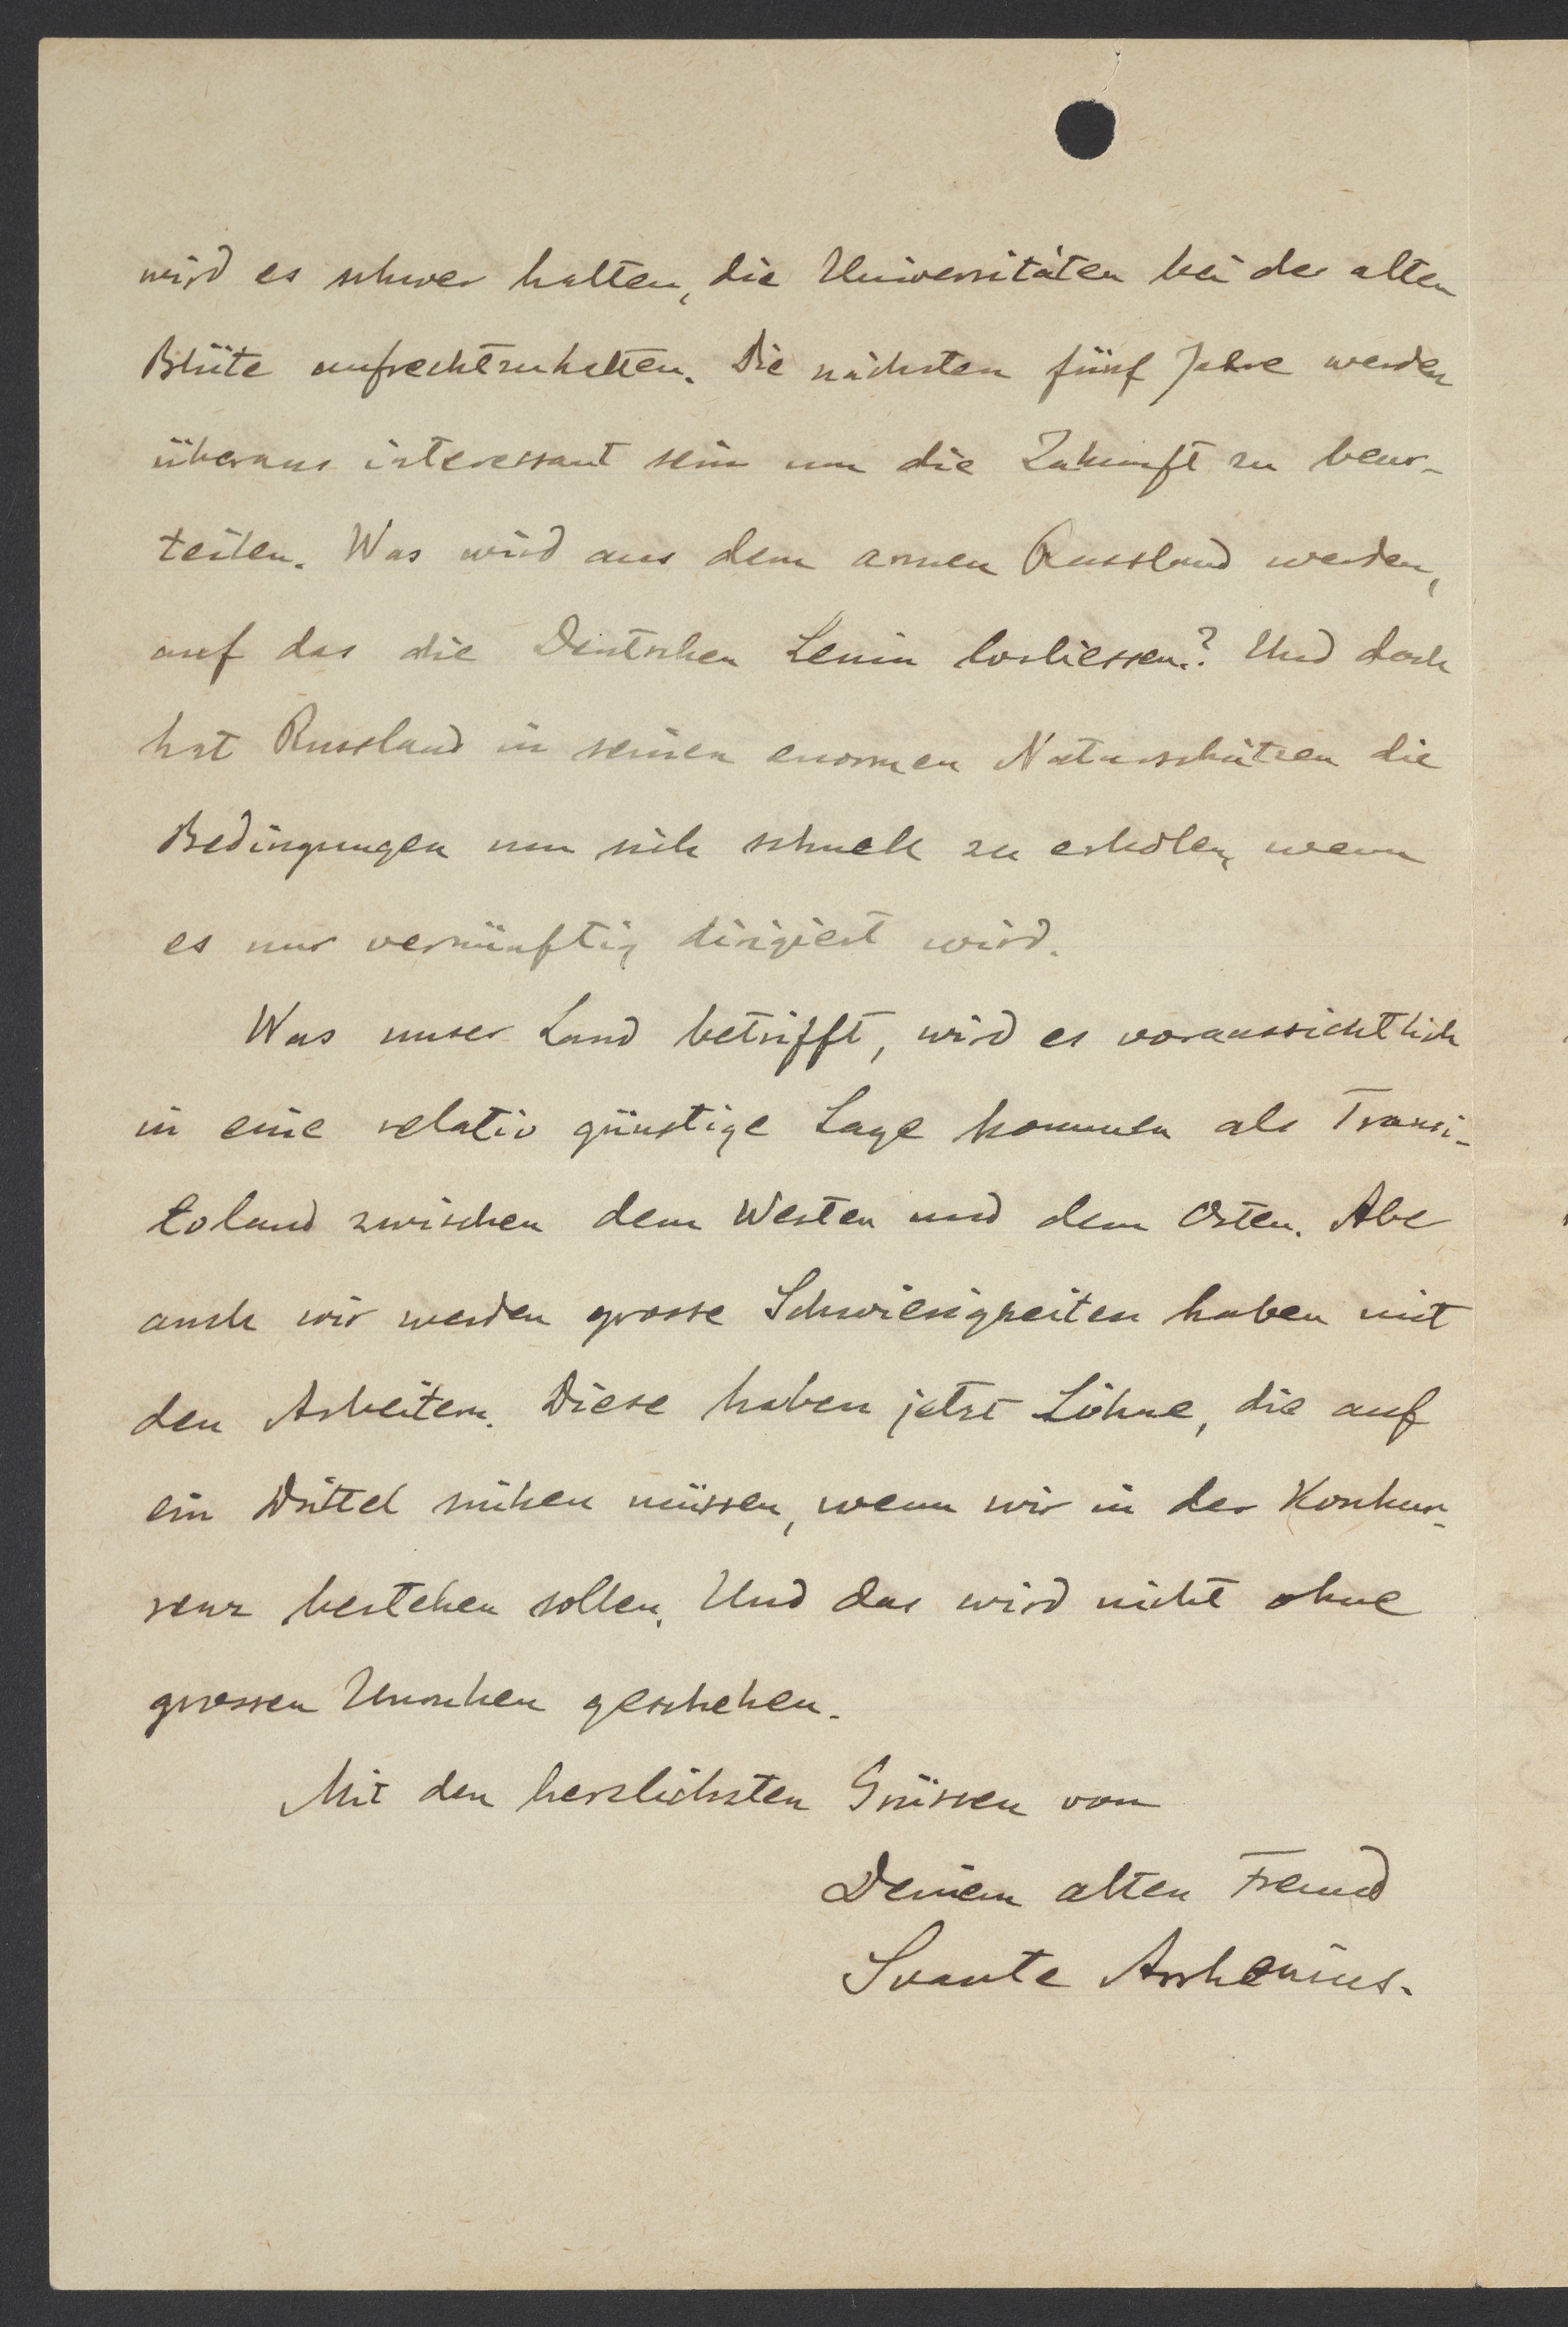 wird es schwer halten, die Universitäten bei der alten
Blüte aufrechtzuhalten. Die nächsten fünf Jahre werden
überaus interessant sein um die Zukunft zu beur-
teilen. Was wird aus dem armen Russland werden,
auf das die Deutschen Lenin losliessen? Und doch
hat Russland in seinen enormen Naturschätzen die
Bedingungen um sich schnell zu erholen, wenn
es nur vernünftig dirigiert wird.
Was unser Land betrifft, wird es voraussichtlich
in eine relativ günstige Lage kommen als Transi-
toland zwischen dem Westen und dem Osten. Aber
auch wir werden grosse Schwierigkeiten haben mit
den Arbeitern. Diese haben jetzt Löhne, die auf
ein Drittel sinken müssen, wenn wir in der Konkur-
renz bestehen sollen. Und das wird nicht ohne
grossen Unruhen geschehen.
Mit den herzlichsten Grüssen von
Deinem alten Freund
Svante Arrhenius.